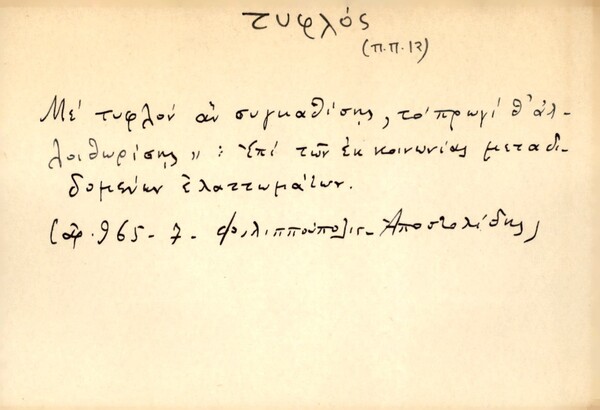 τυφλός
(Π.Π. 12)
Μέ τυφλόν ἄν συγκαθίσῃς, τό πρωγί θ' ἀλ-
λοιθωρίσῃς" : Ἐπί τῶν ἐκ κοινωνίας μεταδι-
δομένων ἐλαττωμάτων.
(ἀρ. 965 - 7 - Φιλιππούπολις - Ἀποστολίδης)